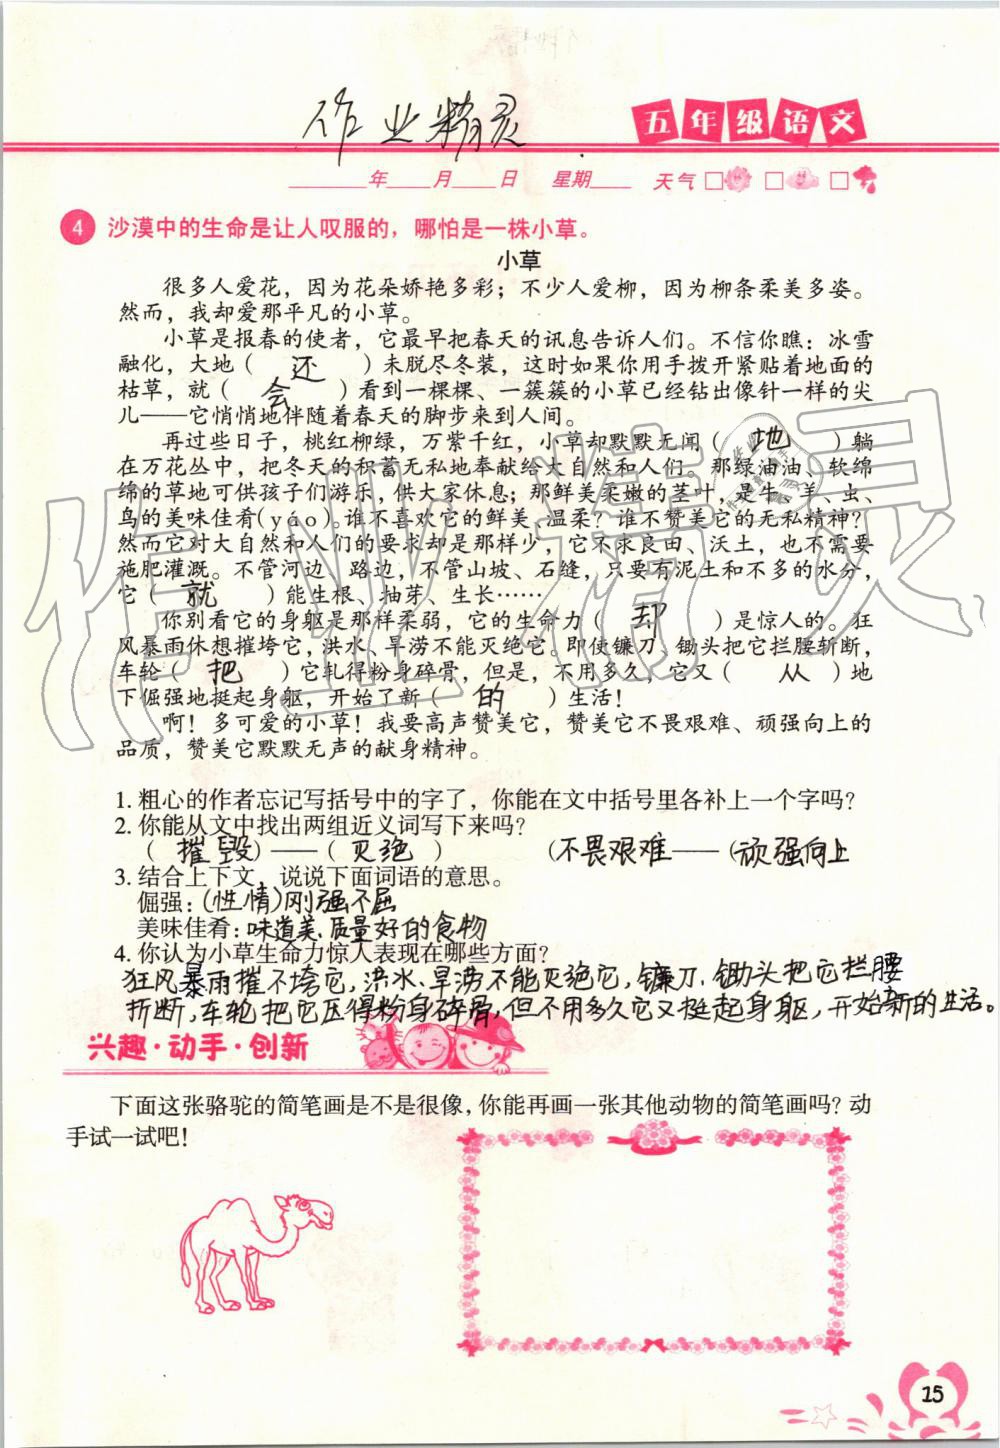 作业精灵
五年级语文
____年____月____日 星期____ 天气□ □ □
4 沙漠中的生命是让人叹服的，哪怕是一株小草。
小草
很多人爱花，因为花朵娇艳多彩；不少人爱柳，因为柳条柔美多姿。
然而，我却爱那平凡的小草。
小草是报春的使者，它最早把春天的讯息告诉人们。不信你瞧：冰雪
融化，大地（ 还 ）未脱尽冬装，这时如果你用手拨开紧贴着地面的
枯草，就（ 会 ）看到一棵棵、一簇簇的小草已经钻出像针一样的尖
儿——它悄悄地伴随着春天的脚步来到人间。
再过些日子，桃红柳绿，万紫千红，小草却默默无闻（ 地 ）躺
在万花丛中，把冬天的积蓄无私地奉献给大自然和人们。那绿油油、软绵
绵的草地可供孩子们游乐，供大家休息；那鲜美柔嫩的茎叶，是牛、羊、虫、
鸟的美味佳肴(yáo)。谁不喜欢它的鲜美、温柔？谁不赞美它的无私精神？
然而它对大自然和人们的要求却是那样少，它不求良田、沃土，也不需要
施肥灌溉。不管河边、路边，不管山坡、石缝，只要有泥土和不多的水分，
它（ 就 ）能生根、抽芽、生长……
你别看它的身躯是那样柔弱，它的生命力（ 却 ）是惊人的。狂
风暴雨休想摧垮它，洪水、旱涝不能灭绝它。即使镰刀、锄头把它拦腰斩断，
车轮（ 把 ）它轧得粉身碎骨，但是，不用多久，它又（ 从 ）地
下倔强地挺起身躯，开始了新（ 的 ）生活！
啊！多可爱的小草！我要高声赞美它，赞美它不畏艰难、顽强向上的
品质，赞美它默默无声的献身精神。
1. 粗心的作者忘记写括号中的字了，你能在文中括号里各补上一个字吗？
2. 你能从文中找出两组近义词写下来吗？
（ 摧毁 ）——（ 灭绝 ） （不畏艰难——（顽强向上
3. 结合上下文，说说下面词语的意思。
倔强：(性情)刚强不屈
美味佳肴：味道美、质量好的食物
4. 你认为小草生命力惊人表现在哪些方面？
狂风暴雨摧不垮它，洪水、旱涝不能灭绝它，镰刀、锄头把它拦腰
折断，车轮把它压得粉身碎骨，但不用多久它又挺起身躯，开始新的生活。
兴趣·动手·创新
下面这张骆驼的简笔画是不是很像，你能再画一张其他动物的简笔画吗？动
手试一试吧！
15
作业精灵